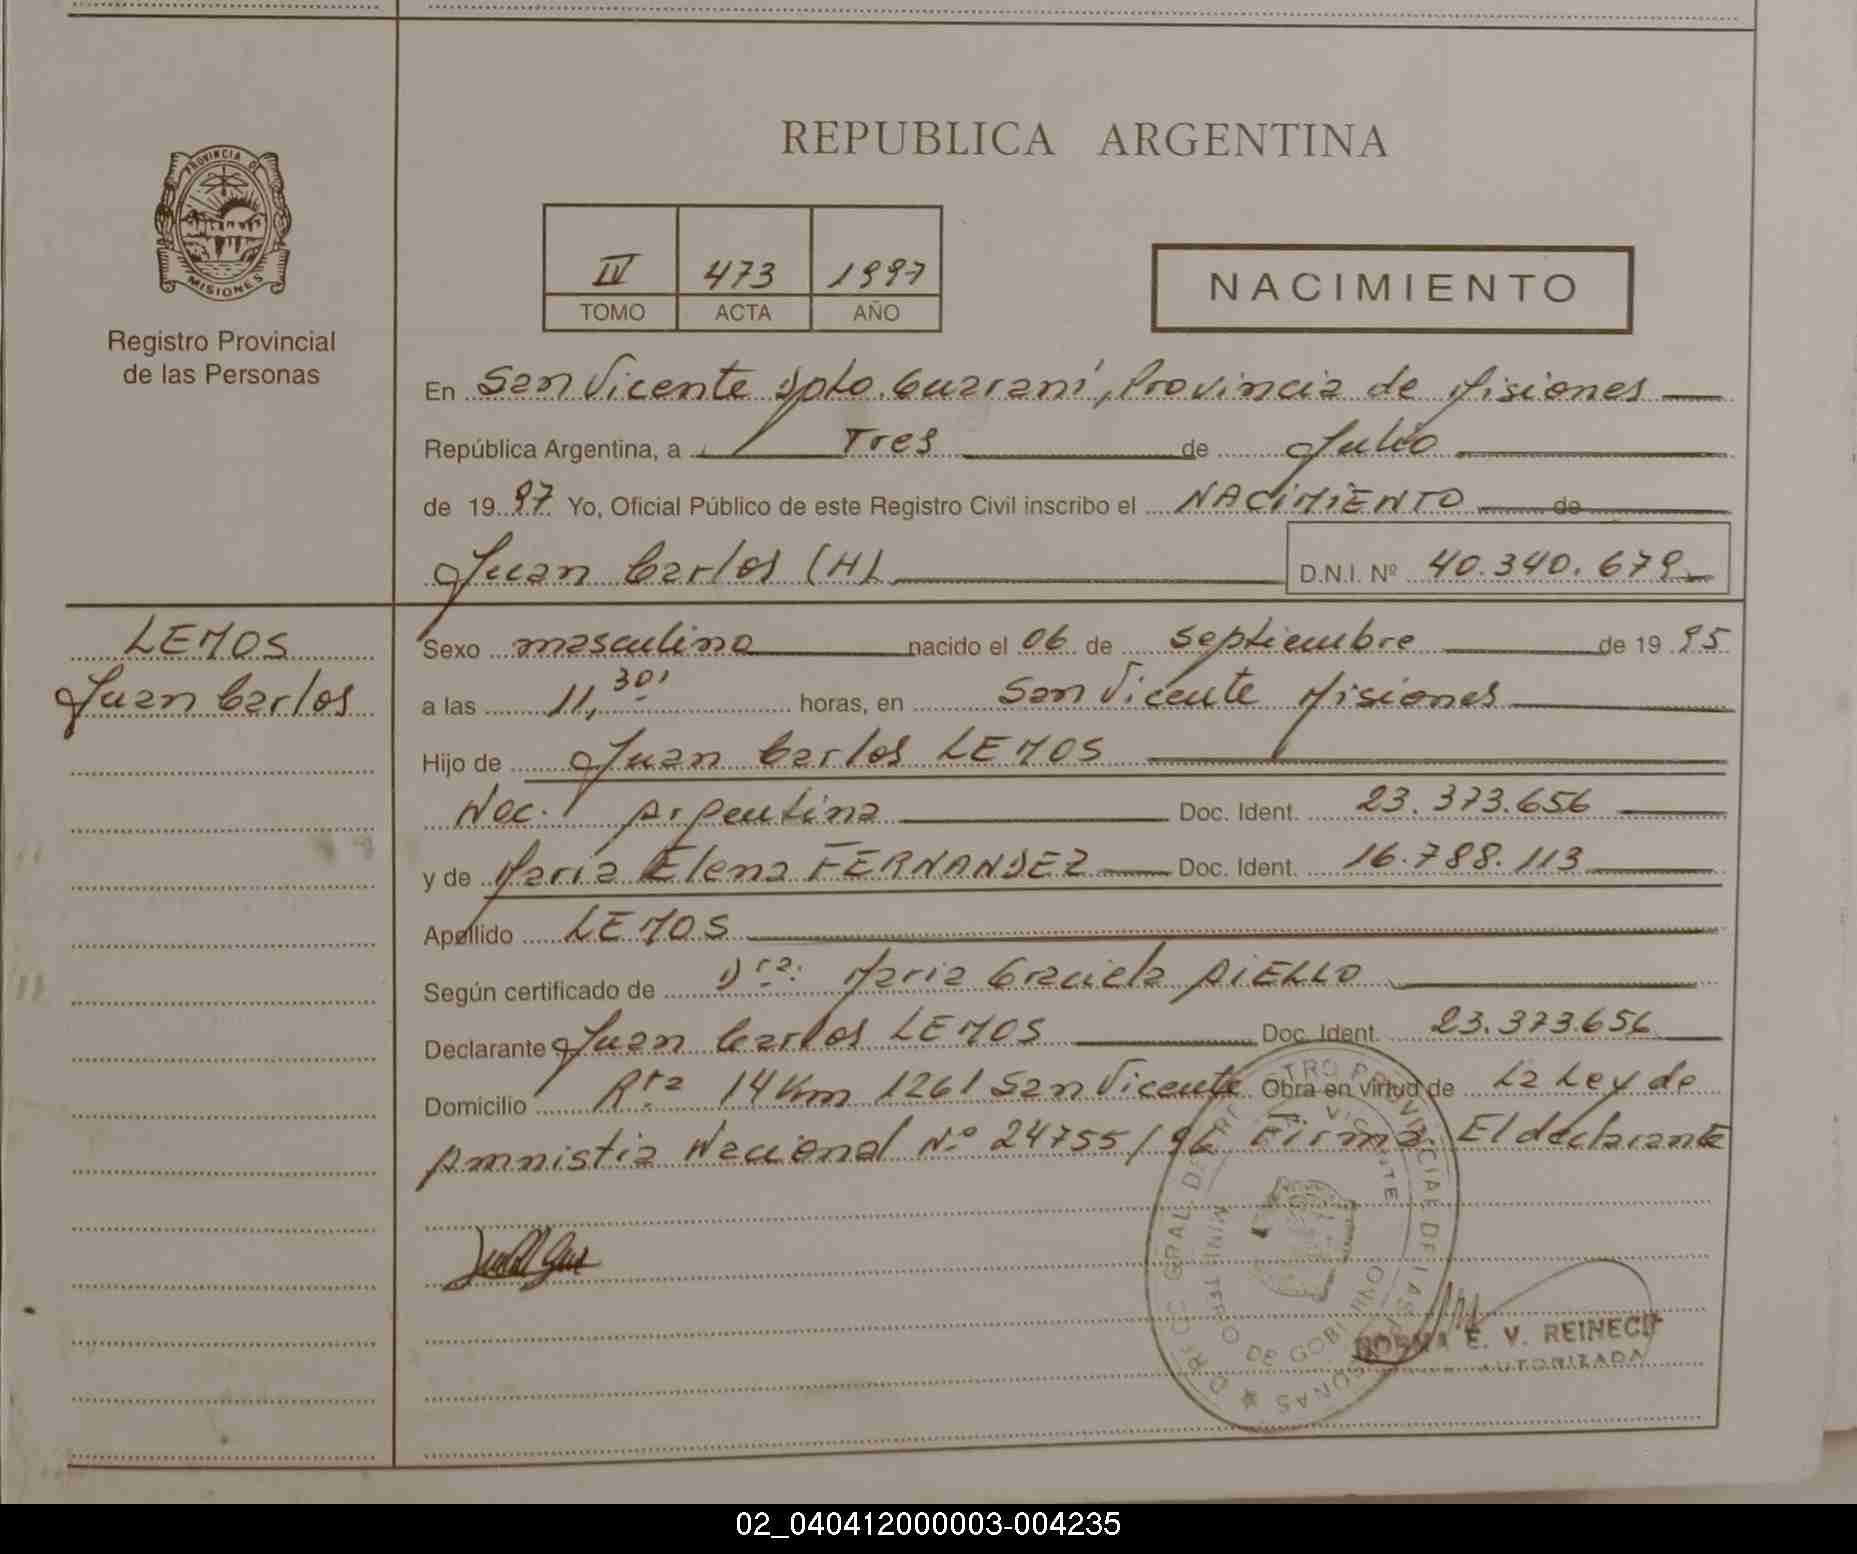 REPUBLICA ARGENTINA
PROVINCIA DE
MISIONES
Registro Provincial
de las Personas
IV 473 1997
TOMO ACTA AÑO
NACIMIENTO
En San Vicente Dpto. Guaraní, Provincia de Misiones
República Argentina, a Tres de Julio
de 19 97 Yo, Oficial Público de este Registro Civil inscribo el NACIMIENTO de
Juan Carlos (H) D.N.I. Nº 40.340.679
LEMOS
Juan Carlos
Sexo masculino nacido el 06 de septiembre de 19 95
a las 11,30' horas, en San Vicente Misiones
Hijo de Juan Carlos LEMOS
Nac. Argentina Doc. Ident. 23.373.656
y de María Elena FERNANDEZ Doc. Ident. 16.788.113
Apellido LEMOS
Según certificado de Dra. Maria Graciela AiELLO
Declarante Juan Carlos LEMOS Doc. Ident. 23.373.656
Domicilio Rta 14 Km 1261 San Vicente Obra en virtud de La Ley de
Amnistia Nacional Nº 24755/96 Firma. El declarante
NORMA E. V. REINECK
AUTORIZADA
02_040412000003-004235